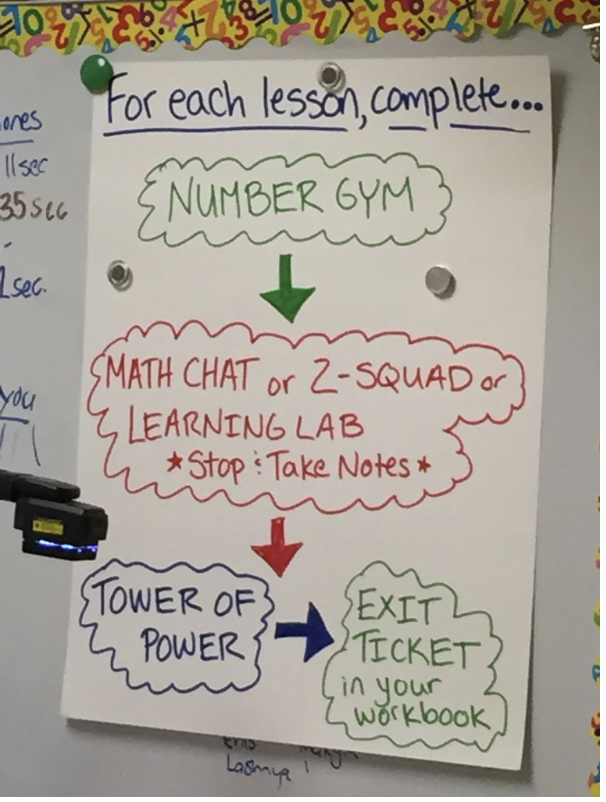 For each lesson, complete...
NUMBER GYM
MATH CHAT or Z-SQUAD or
LEARNING LAB
*Stop & Take Notes*
TOWER OF
POWER
EXIT
TICKET
in your
workbook
ones
11sec
35sec
sec.
you
Lasmya